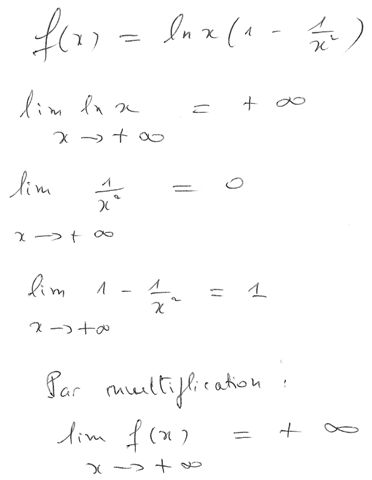 f(x) = ln x (1 - 1/x²)
lim ln x = + ∞
x → + ∞
lim 1/x² = 0
x → + ∞
lim 1 - 1/x² = 1
x → +∞
Par multiplication :
lim f(x) = + ∞
x → + ∞